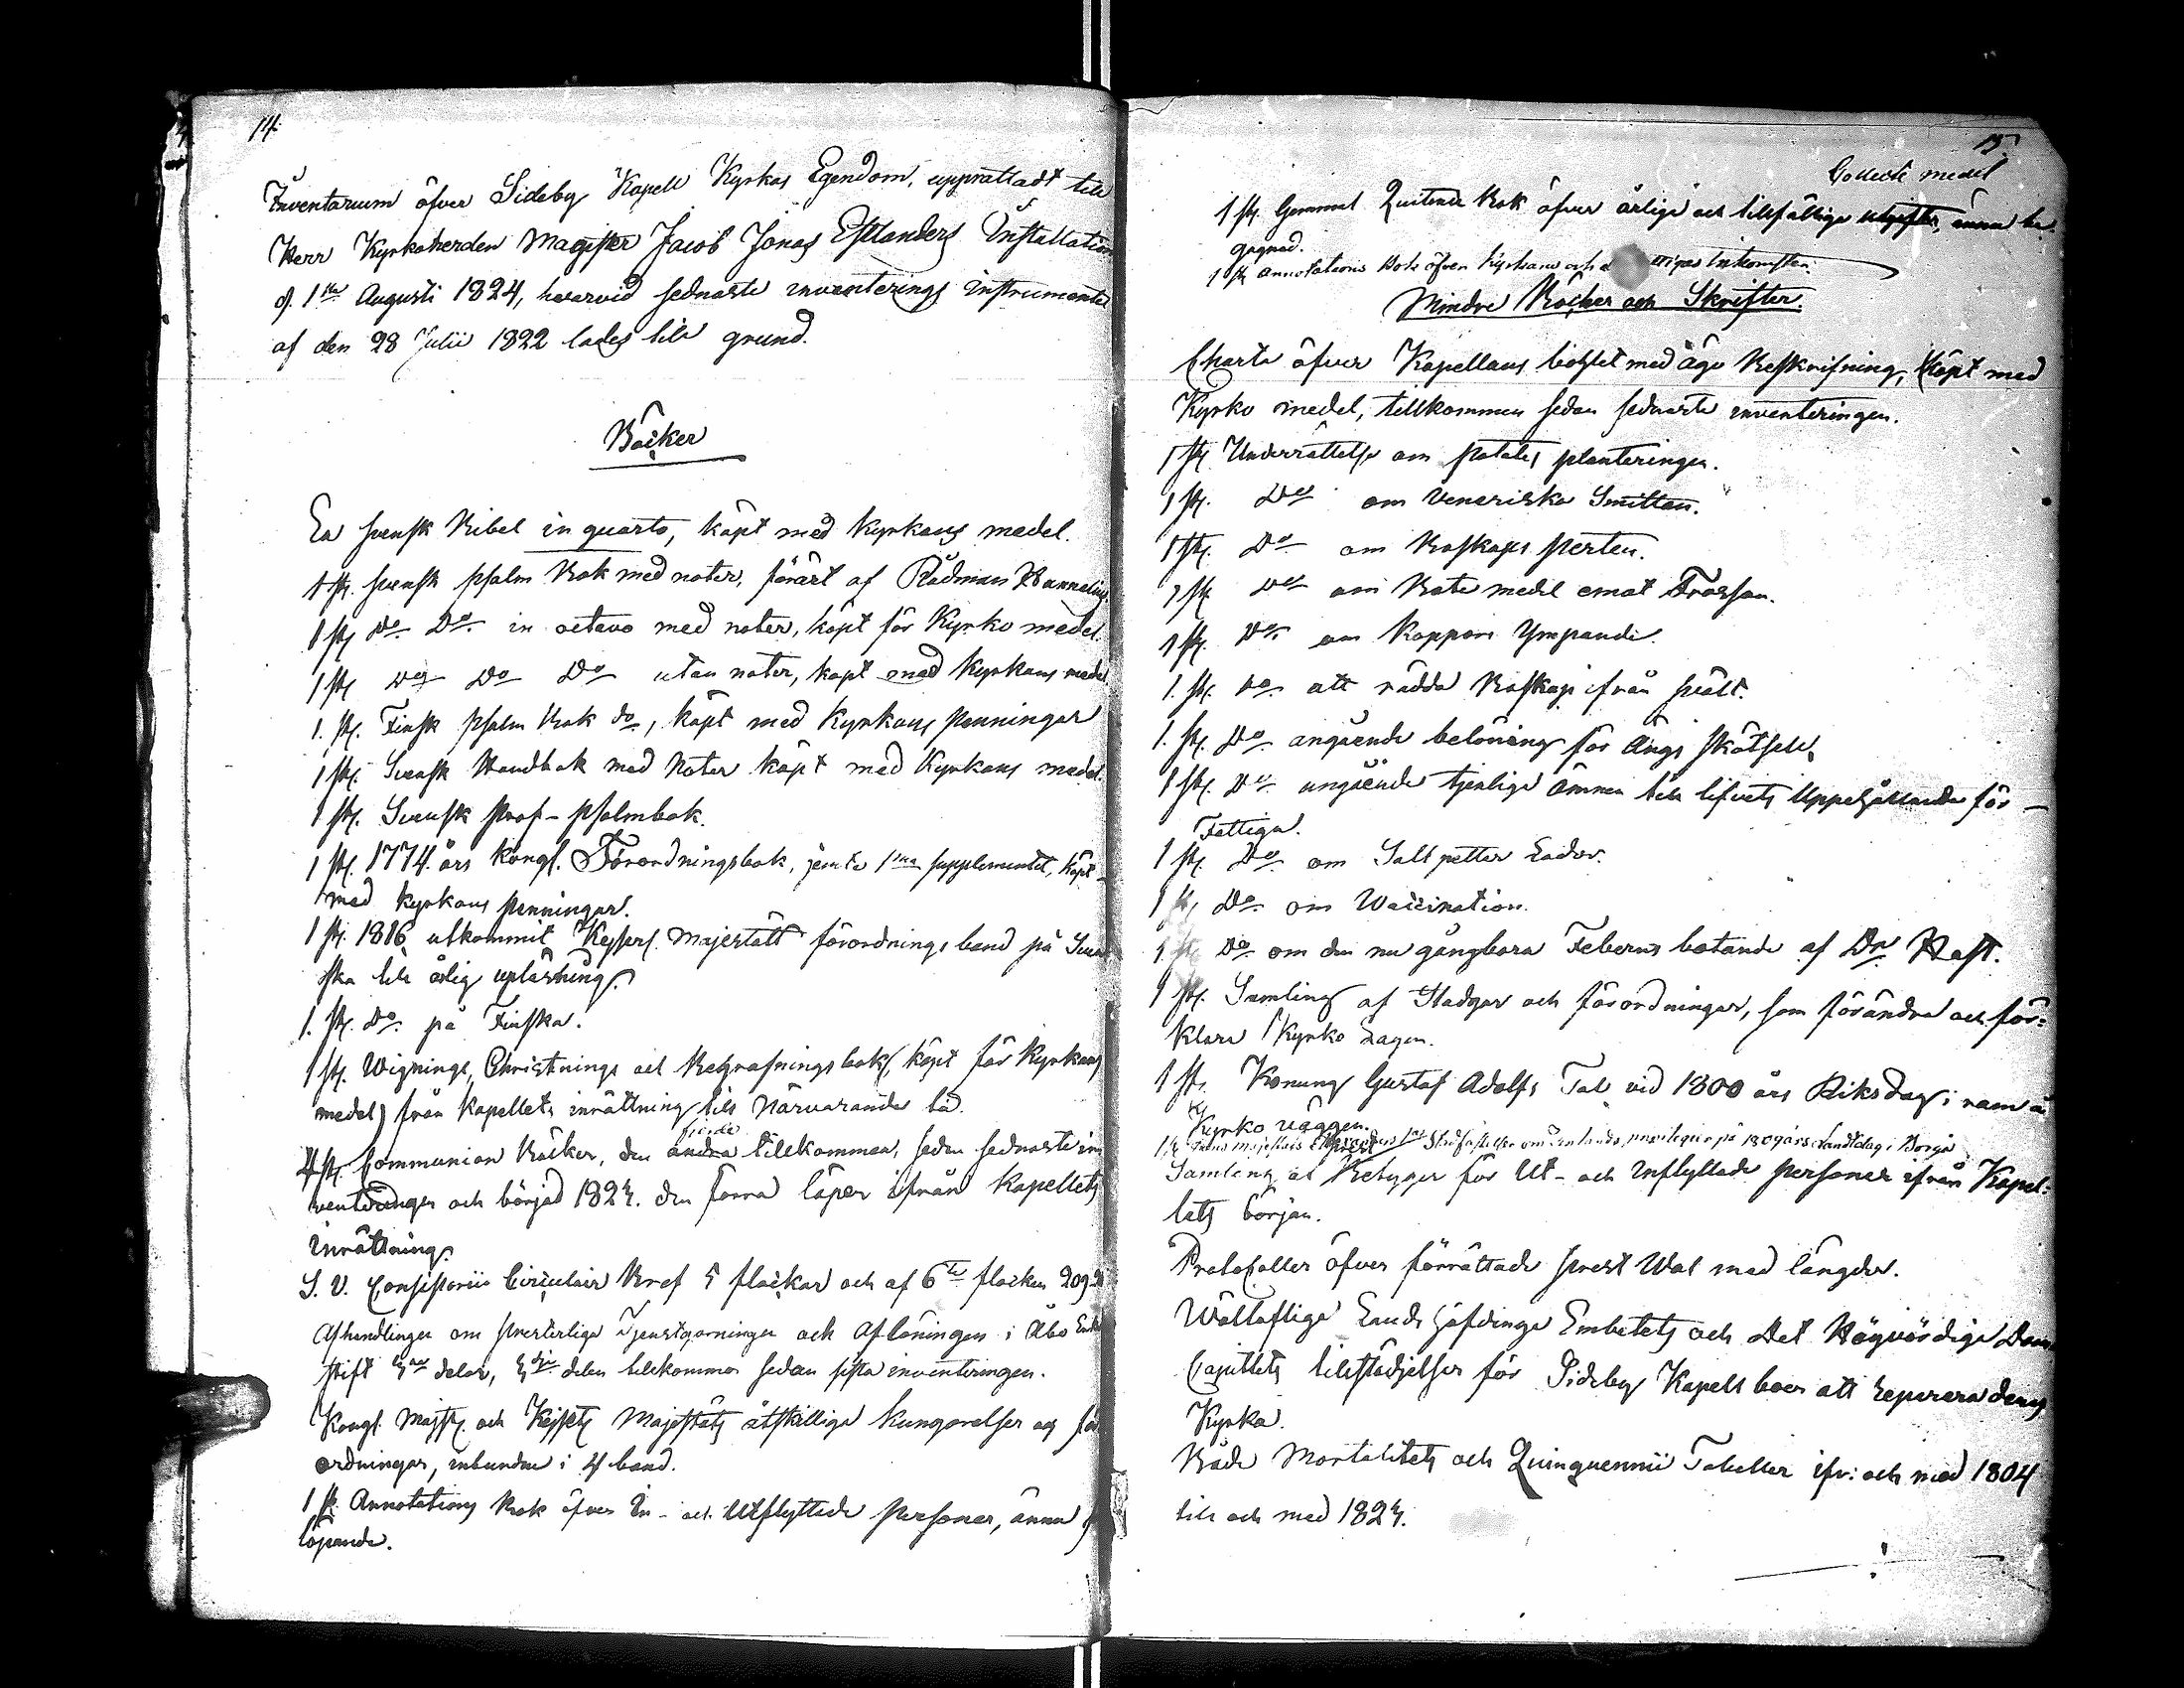 14.
Inventarium öfver Sideby Kapell Kyrkas Egendom, upprättadt till
Herr Kyrkoherden Magister Jacob Jonas Estlanders Installation
d. 1sta Augusti 1824, hvarvid sednaste inventerings instrumentet
af den 28 Julii 1822 lades till grund.
Böcker
En svensk Bibel in quarto, köpt med Kyrkans medel.
1 st. svensk psalm Bok med noter, förärt af Rådman
1 st. Do Do in octavo med noter, köpt för Kyrko medel
1 st. Do Do Do utan noter, köpt med Kyrkans medel
1. st. Finsk psalm Bok do, köpt med Kyrkans penningar
1 st. Svensk Handbok med Noter köpt med Kyrkans medel.
1 st. Svensk Prof-psalmbok.
1 st. 1774 års Kongl. Förordningsbok, jemte 1sta supplementet, köpt
med kyrkans penningar.
1 st. 1816 utkommit Kejserl. Majestätt förordnings band på Sven
ska till årlig upläsning.
1. st. Do på Finska.
1 st. Wignings, Christnings och Begrafnings bok, köpt för Kyrkans
medel, från Kapellets inrättning till Närvarande tid.
fierde
4 st. Communion Böcker, den andra tillkommen, sedan sednaste in
venteringen och börjad 1824. den förra löper ifrån Kapellets
Inrättning.
S. V. Consistorii Circulair Bref 5 flockar och af 6te flocken 209
Afhandlingen om presterliga Tjenstgörningen och Aflöningen i Åbo Erke
stift delar, delen tillkommen sedan sista inventeringen.
Kongl. Majst. och Kejsts Majestäts åtskilliga kungörelser och för
ordningar, inbundne i 4 band.
1 st. Annotations Bok öfver In- och Utflyttade personer, ännu
löpande.
15.
Collect medel
1 st. Gammal Quittence Bok öfver årliga och tillfällige utgifter, ännu be
gagnad.
1 st. Annotations Bok öfver Kyrkans och Inkomster.
Mindre Böcker och Skrifter.
Charta öfver Kapellans bohlet med ägo Beskrifning, köpt med
Kyrko medel, tillkommen sedan sednaste inventeringen.
1 st. Underrättelse om Potates planteringen.
1 st. Do om Veneriska Smittan.
1 st. Do om Boskaps pesten.
1 st. Do om Bote medel emot Frossan.
1 st. Do om Koppors Ympande.
1. st. Do att rädda Boskap ifrån svält.
1. st. Do angående belöning för Ängs skötsel.
1 st. Do angående tjenliga ämnen till lifvets Uppehållande för
Fattiga.
1 st. Do om Saltpetter Lador.
1 st. Do om Waccination.
1 st. Do om den nu gångbara Feberns botande af Dr Haft.
1 st. Samling af Stadgar och förordningar, som förändra och för=
klara Kyrko Lagen.
1 st. Konung Gustaf Adolfs Tal vid 1800 års Riksdag i ram å
Kyrko väggen.
1 st. Hans Majestäts Alexander 1as Stadfästelse om Landets privilegier på 1809 års Landtdag i Borgå
Samling af Betyger för Ut- och Inflyttade personer ifrån Kapel=
lets början.
Protocoller öfver förrättade prest Wal med längder.
Wällofliga Landshöfdinge Embetets och Det Högvördige Dom
Capitlets tillstädjelser för Sideby Kapell boer att reparera deras
Kyrka.
Både Mortalitets och Quinquennii Tabeller ifr: och med 1804
till och med 1824.